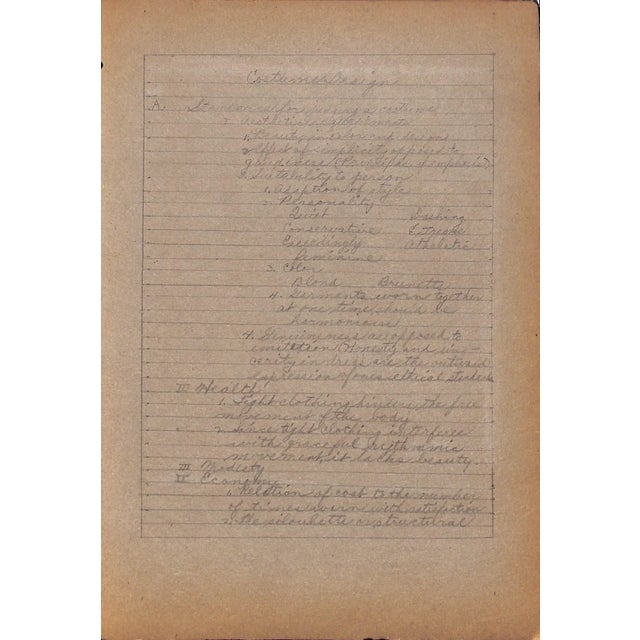 Costume Design
A. Standards for judging a costume
I. Aesthetic requirements
1. Beauty in color and design
2. Effect of simplicity opposed to
gaudiness (Principles of emphasis)
3. Suitability to person
1. Adaption of style
2. Personality
Quiet Dashing
Conservative
Exceedingly Athaletic
feminine
3. Color
Blond Brunette
4. Garments worn together
at one time should be
harmonious
4. Genuineness as opposed to
imitation (Honesty and sin-
cerity in dress are the outward
expression of ones ethical standards
II Health
1. Tight clothing hinders the free
movement of the body
2. Since tight clothing interferes
with graceful rythmic
movement, it lacks beauty.
III Modesty
IV Economy
1. Relation of cost to the number
of times worn with satisfaction
2. The silouhette or structural